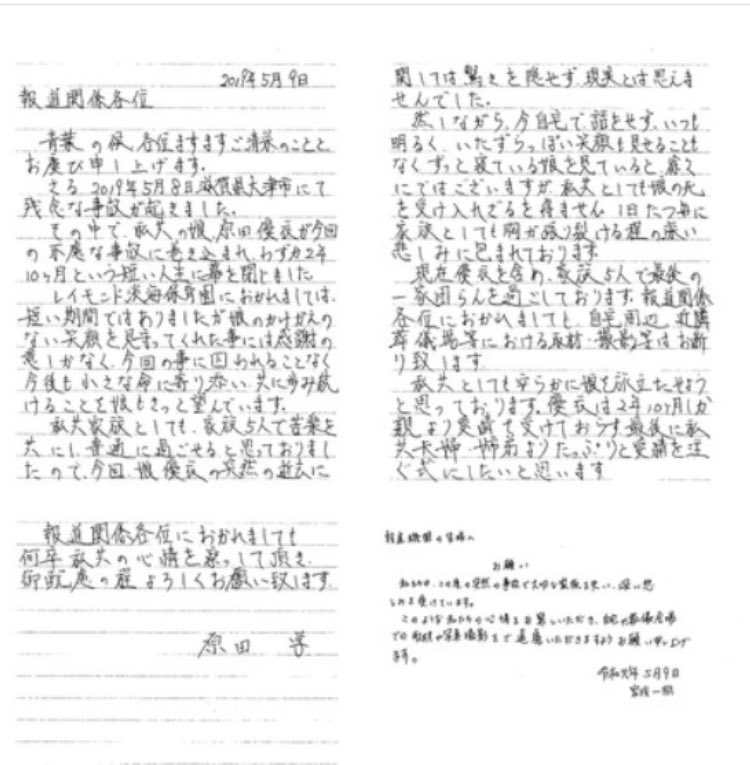 2019年5月9日
報道関係各位
青葉の候、各位ますますご清栄のことと
お慶び申し上げます。
さる2019年5月8日滋賀県大津市にて
残念な事故が起きました。
その中で、私共の娘、原田優衣が今回
の不慮な事故に巻き込まれ、わずか2年
10ヶ月という短い人生に幕を閉じました
レイモンド淡海保育園におかれましては、
短い期間ではありましたが娘のかけがえの
ない笑顔を見守ってくれた事には感謝の
意しかなく、今回の事に囚われることなく
今後も小さな命に寄り添い、共に歩み続
けることを娘もきっと望んでいます。
私共家族としても、家族5人で苦楽を
共にし、普通に過ごせると思っておりまし
たので、今回、娘優衣の突然の逝去に
関しては驚きを隠せず、現実とは思えま
せんでした。
然しながら、今自宅で話をせず、いつも
明るく、いたずらっぽい笑顔も見せることも
なくずっと寝ている娘を見ていると、
にではございますが、私共としても娘の死
を受け入れざるを得ません。1日たつ毎に
家族としても胸が張り裂ける程の深い
悲しみに包まれております。
現在優衣を含め、家族5人で最後の
一家団らんを過ごしております。報道関係
各位におかれましても、自宅周辺、近隣
葬儀場等における取材・撮影等はお断
り致します。
私共としても安らかに娘を旅立たせよう
と思っております。優衣は2年10ヶ月しか
親より愛情を受けておらず最後に私
共夫婦・姉弟よりたっぷりと愛情を注
ぐ式にしたいと思います
報道関係各位におかれましても
何卒私共の心情を察して頂き、
御配慮の程よろしくお願い致します。
原田 学
報道機関の皆様へ
お願い
私たちは、この度の突然の事故で大切な家族を失い、深い悲
しみを受けています。
このような私たちの心情をお察しいただき、自宅や葬儀会場
での取材や写真撮影をご遠慮いただきますようお願い申し上げ
ます。
令和元年5月9日
一同